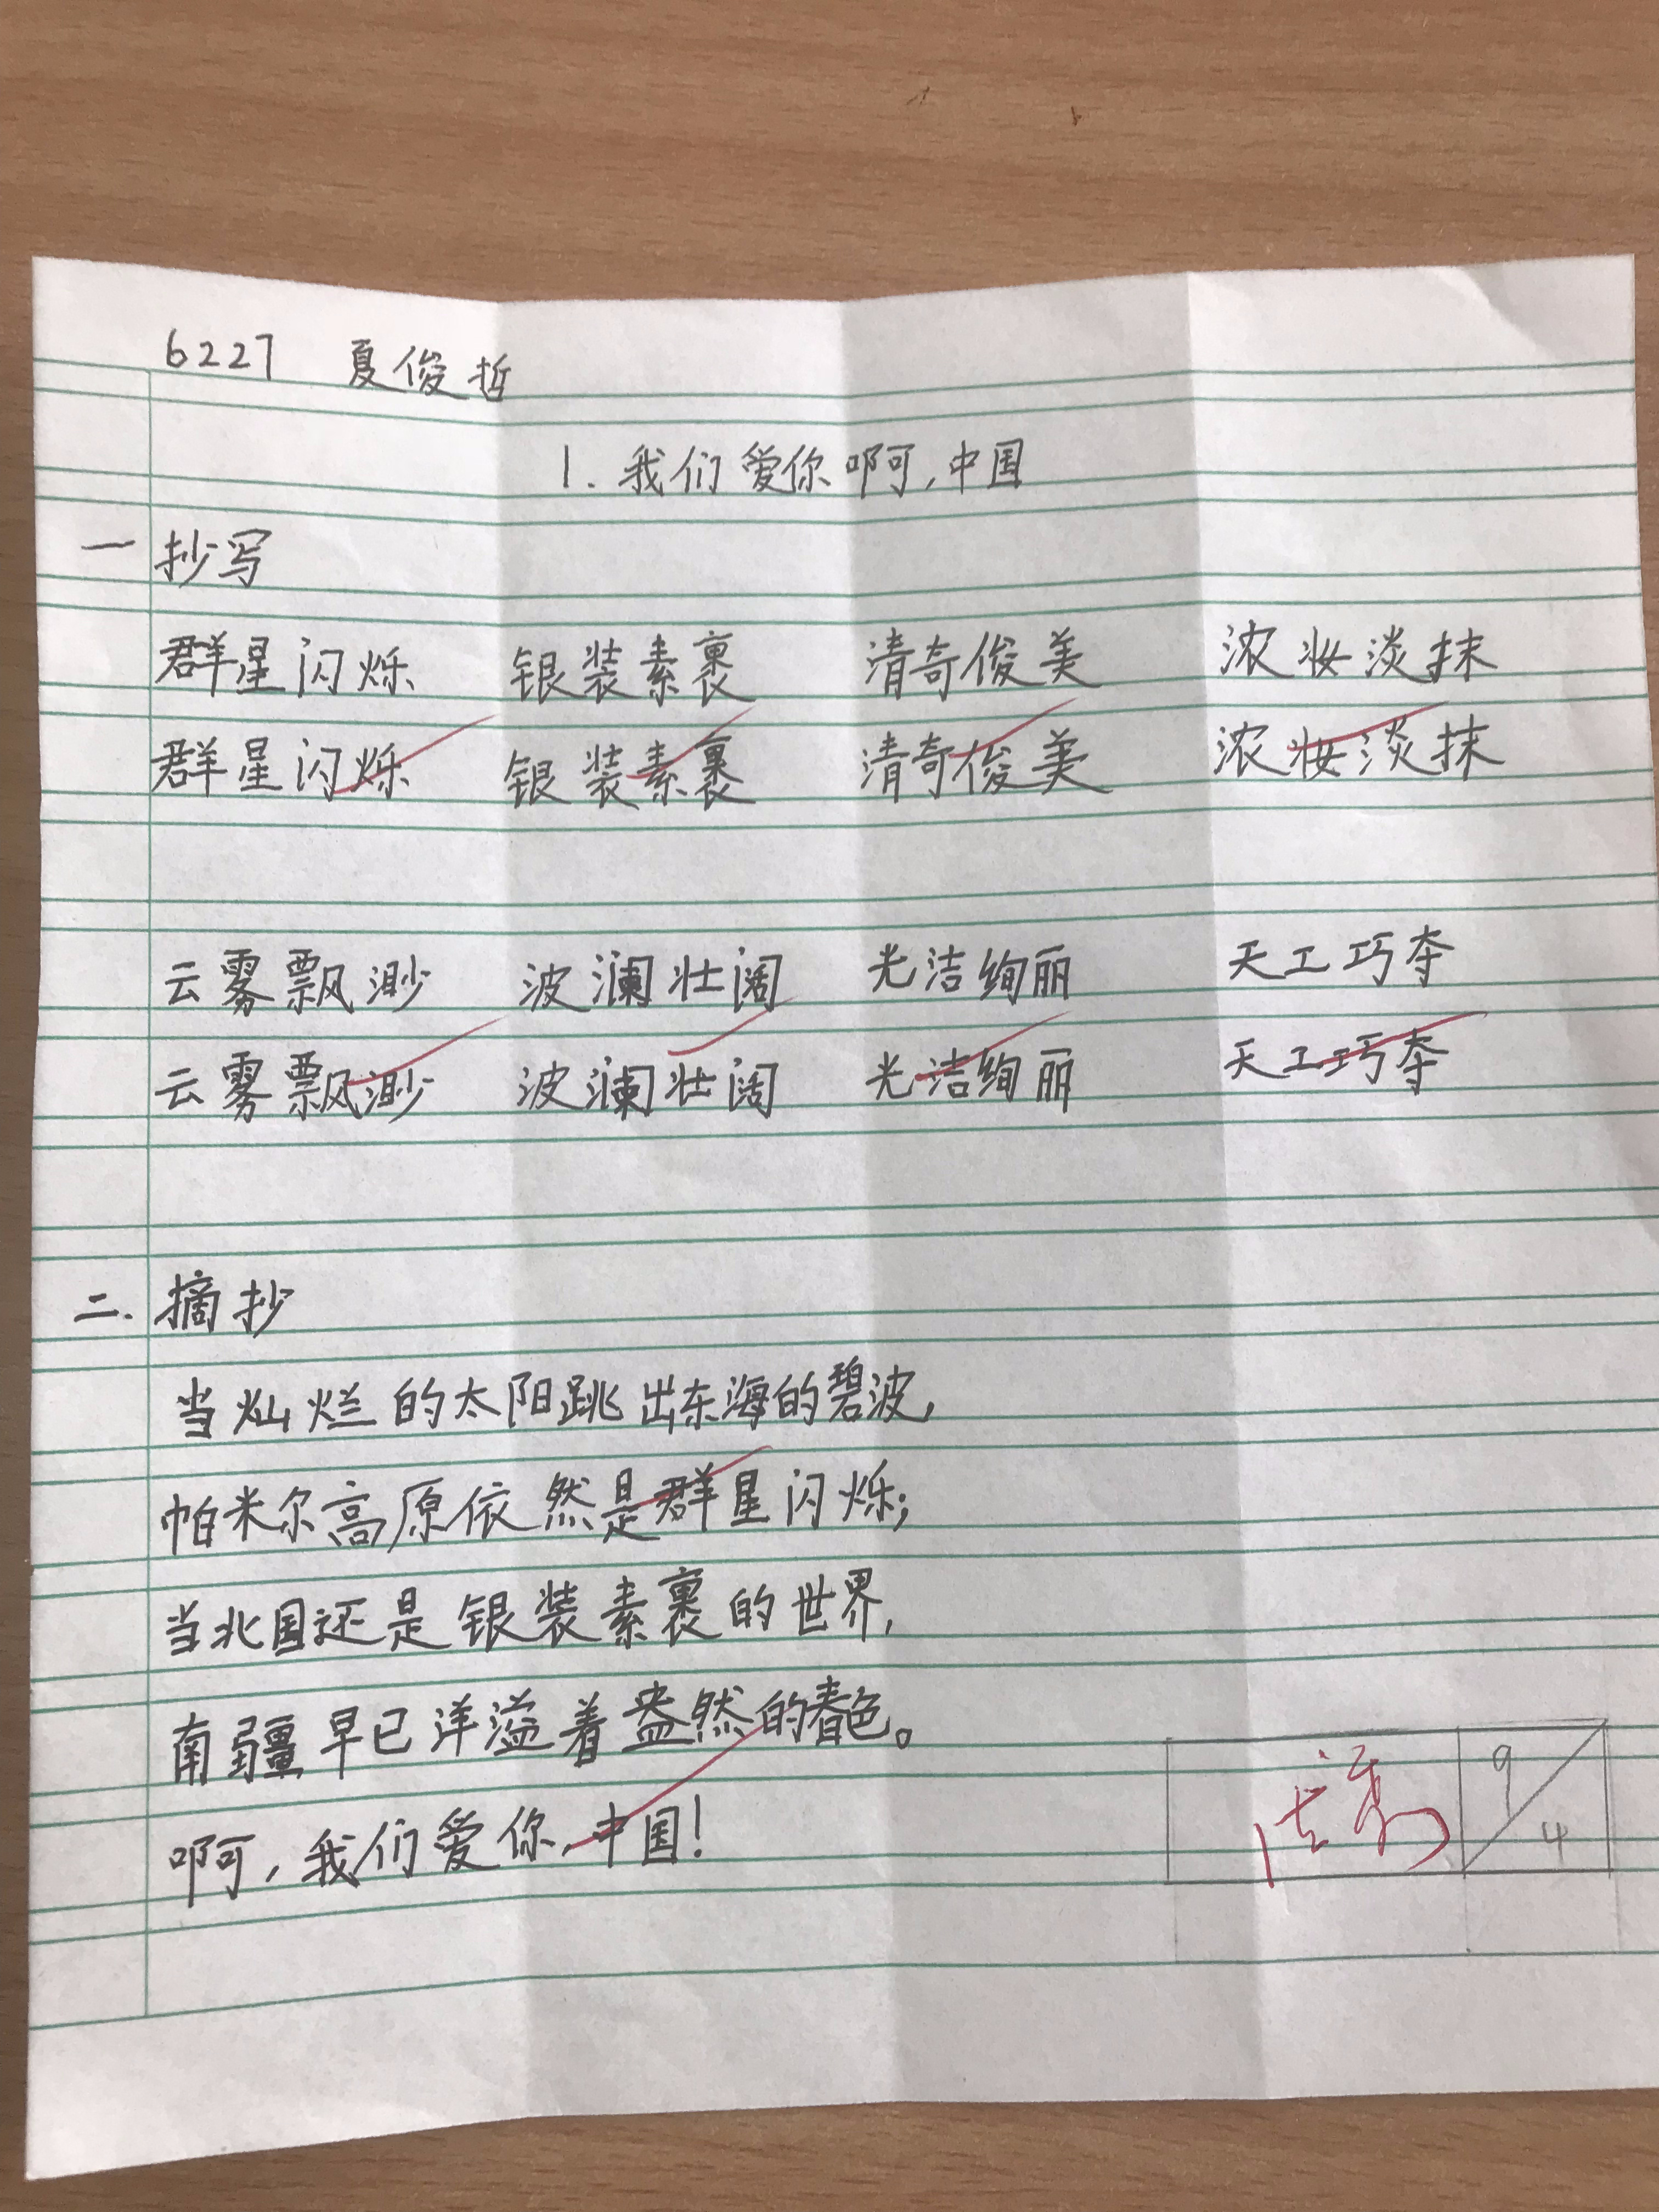 6227 夏俊哲
1. 我们爱你啊,中国
一 抄写
群星闪烁 银装素裹 清奇俊美 浓妆淡抹
群星闪烁 银装素裹 清奇俊美 浓妆淡抹
云雾飘渺 波澜壮阔 光洁绚丽 天工巧夺
云雾飘渺 波澜壮阔 光洁绚丽 天工巧夺
二. 摘抄
当灿烂的太阳跳出东海的碧波,
帕米尔高原依然是群星闪烁;
当北国还是银装素裹的世界,
南疆早已洋溢着盎然的春色。
啊,我们爱你,中国!
9/4